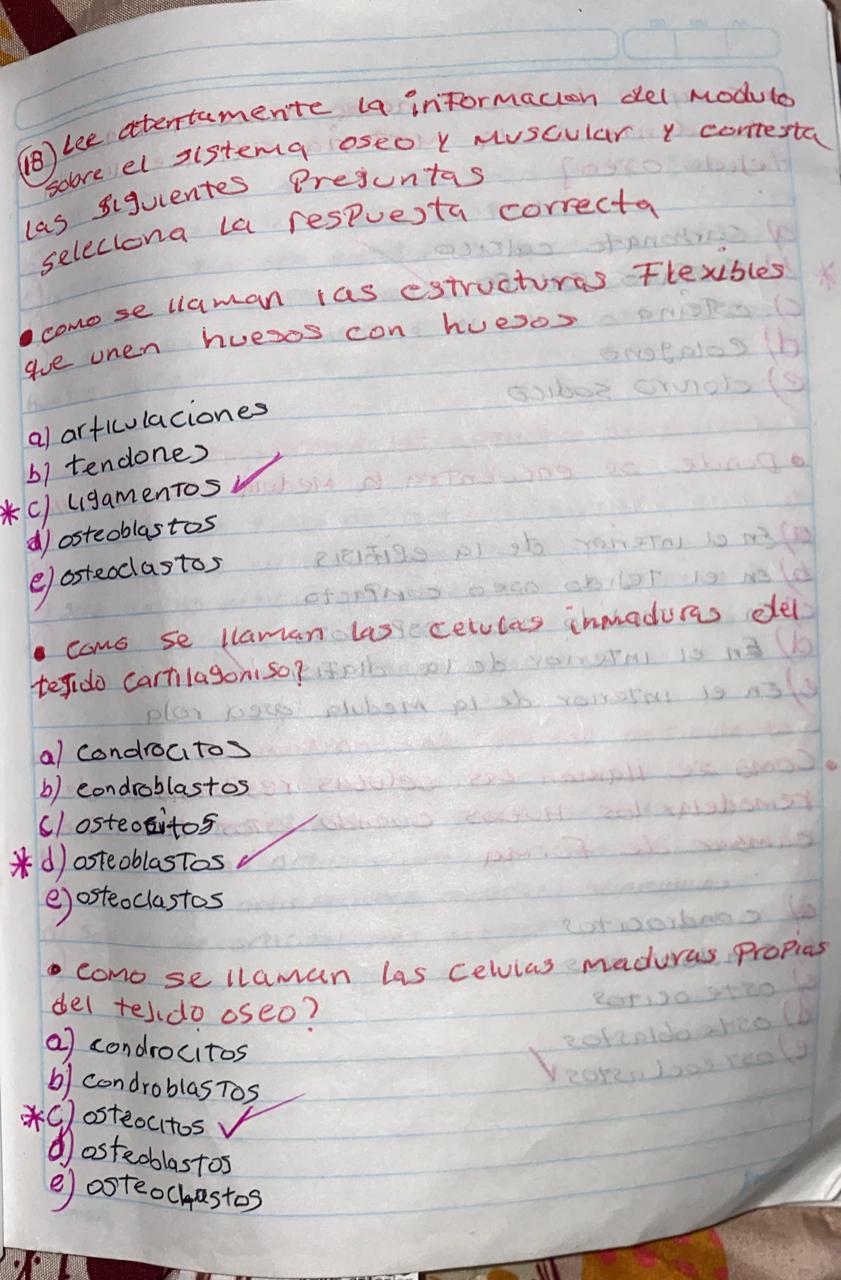 18) Lee atentamente la informacion del modulo
sobre el sistema oseo y muscular y contesta
las siguientes preguntas
seleciona la respuesta correcta
• como se llaman las estructuras Flexibles
que unen huesos con huesos
a) articulaciones
b) tendones
* c) ligamentos ✓
d) osteoblastos
e) osteoclastos
• como se llaman las celulas inmaduras del
tejido cartilagoniso?
a) condrocitos
b) condroblastos
c) osteocitos
* d) osteoblastos ✓
e) osteoclastos
• como se llaman las celulas maduras propias
del tejido oseo?
a) condrocitos
b) condroblastos
* c) osteocitos ✓
d) osteoblastos
e) osteoclastos